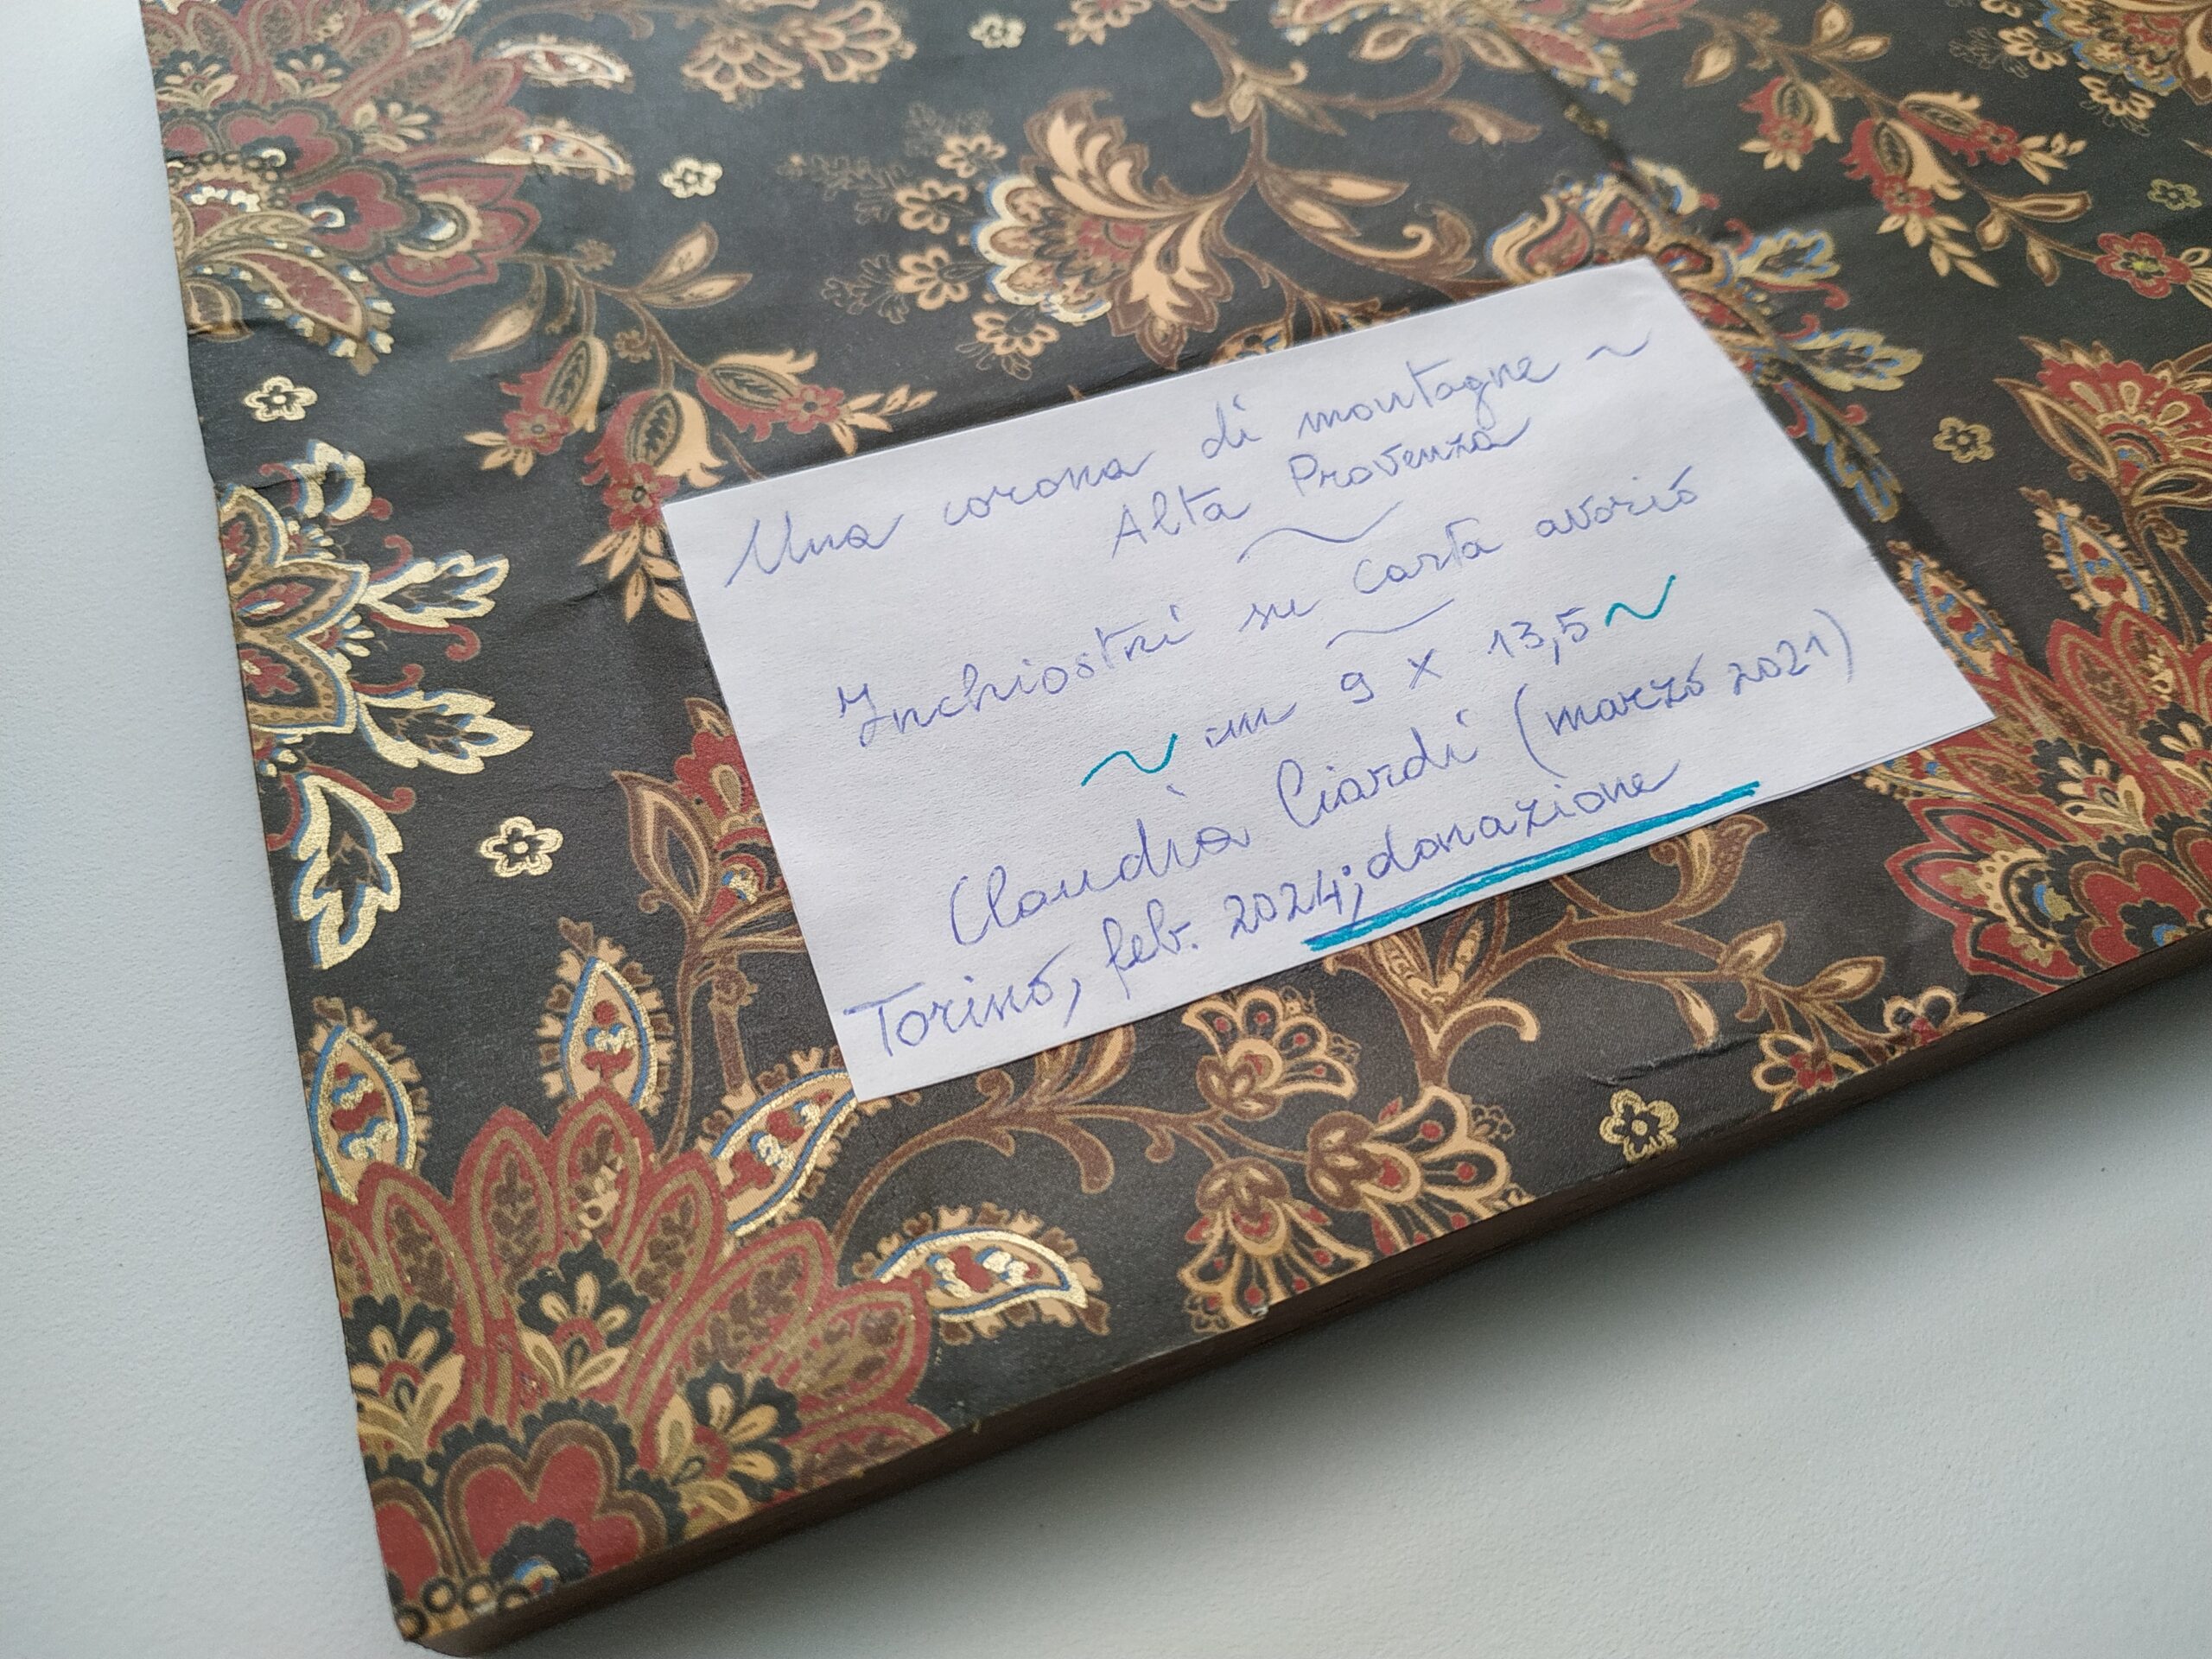 Una corona di montagne ~
Alta Provenza
~
Inchiostri su carta avorio
~
~ cm 9 x 13,5 ~
Claudia Ciardi (marzo 2021)
Torino, feb. 2024; donazione